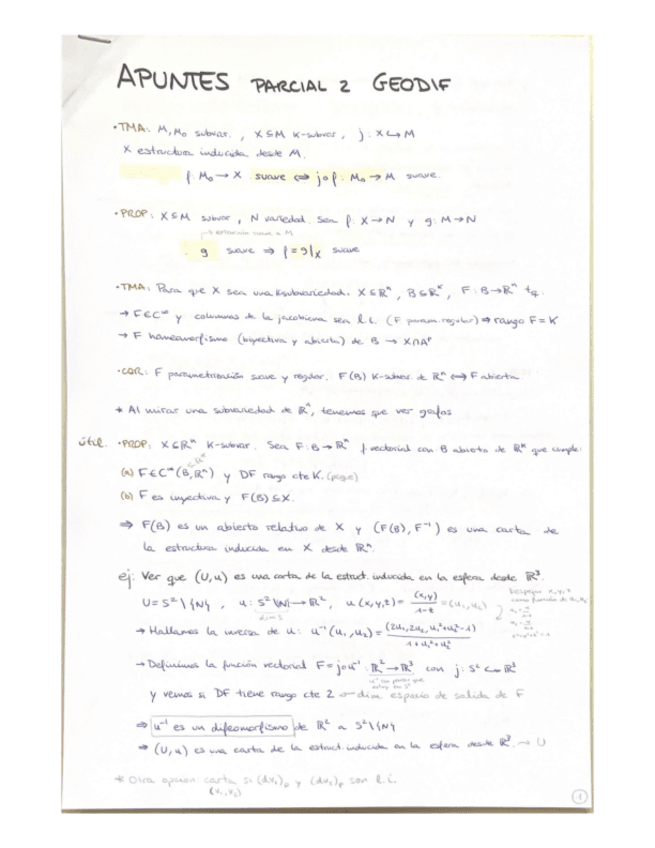 APUNTES PARCIAL 2 GEODIF
• TMA: M, M₀ subvar. , X⊆M K-subvar, j: X↪M
X estructura inducida desde M.
f: M₀→X suave ⟺ j∘f: M₀→M suave.
• PROP: X⊆M subvar, N variedad. Sea f: X→N y g: M→N
a M
g suave ⇒ f=g|x suave
• TMA: Para que X sea una K-subvariedad. X⊆ℝⁿ, B⊆ℝᴷ, F: B→ℝⁿ tq.
→ F∈C^∞ y columnas de la jacobiana sea l.i. (F param. regular) ⇒ rango F=K
→ F homeomorfismo (inyectiva y abierta) de B → X∩Aᴾ
• COR: F parametrización suave y regular. F(B) K-subvar. de ℝⁿ ⟺ F abierta
* Al mirar una subvariedad de ℝⁿ, tenemos que ver grafos
útil. • PROP: X⊆ℝⁿ K-subvar. Sea F: B→ℝⁿ f vectorial con B abierto de ℝᴷ que cumple:
(a) F∈C^∞(B,ℝⁿ) y DF rango cte K.
(b) F es inyectiva y F(B)⊆X.
⇒ F(B) es un abierto relativo de X y (F(B), F⁻¹) es una carta de
la estructura inducida en X desde ℝⁿ.
ej: Ver que (U,u) es una carta de la estruct. inducida en la esfera desde ℝ³.
U=S²\{N}, u: S²\{N}→ℝ², u(x,y,t)= (x,y)/(1-t) =(u₁,u₂)
Despejar x,y,t
como función de u₁,u₂
→ Hallamos la inversa de u: u⁻¹(u₁,u₂)= (2u₁,2u₂,u₁²+u₂²-1)/(1+u₁²+u₂²)
→ Definimos la función vectorial F=j∘u⁻¹: ℝ²→ℝ³ con j: S²↪ℝ³
y vemos si DF tiene rango cte 2 → dim espacio de salida de F
⇒ u⁻¹ es un difeomorfismo de ℝ² a S²\{N}
⇒ (U,u) es una carta de la estruct. inducida en la esfera desde ℝ³. → U
* Otra opción carta si (dv₁)ₚ y (dv₂)ₚ son l.i.
(v₁,v₂)
1